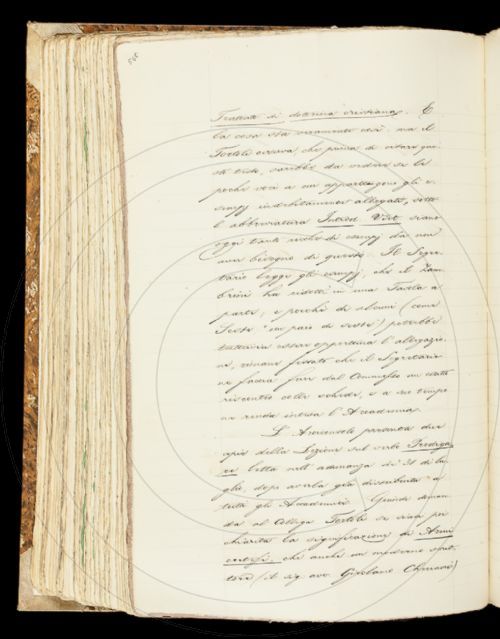 Trattato di dottrina cristiana. E
la cosa sta veramente così: ma il
Tortoli che prima di citare que
sti testi, sarebbe da vedere se le
poche voci a cui appartengono gli e
sempj indebitamente allegati, sotto
l'abbreviatura Introd. Virt. siano
oggi tanti ricchi di esempj da non
aver bisogno di questo. Il Segre
tario legge gli esempj, che il Zam
brini ha ridotti in una Tavola a
parte; e perchè di alcuni (come
Sesta "un paio di seste") potrebbe
tuttavia essere opportuna l'allegazio
ne, rimane fissato che il Segretario
ne faccia fare dal Commesso un esatto
riscontro colle schede, e a suo tempo
ne renda intesa l'Accademia.
L'Arciconsolo presenta due
copie della Lezione sul verbo Prodiga
re letta nell'adunanza de' 31 di lu
glio, dopo averla già distribuita a
tutti gli Accademici. Quindi doman
da al Collega Tortoli se siasi poi
chiarita la significazione di
che anche un moderno scrit
tore (il sig. avv. Girolamo